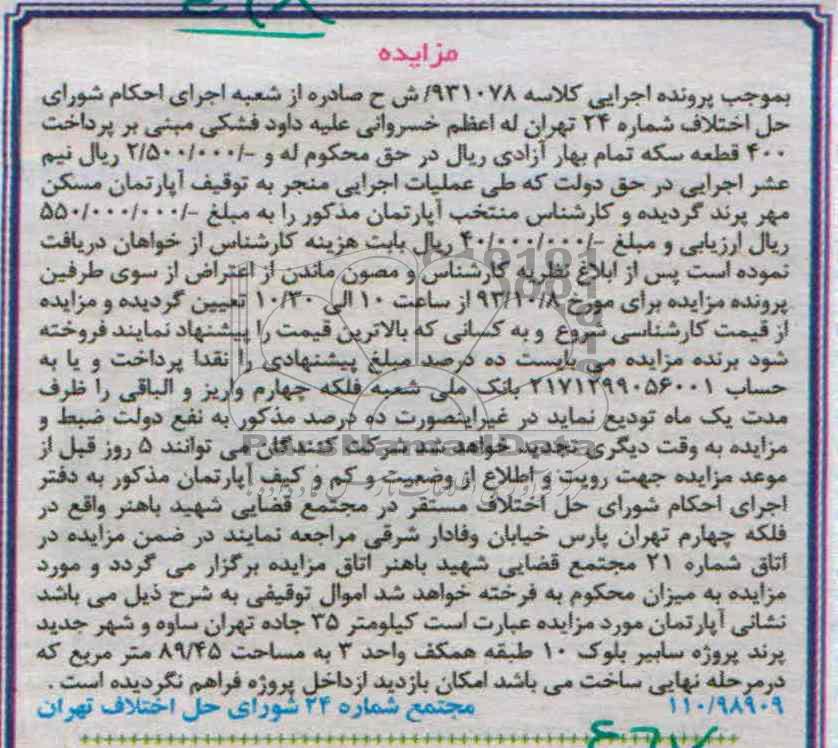 مزایده
بموجب پرونده اجرایی کلاسه ۹۳۱۰۷۸/ ش ح صادره از شعبه اجرای احکام شورای
حل اختلاف شماره ۲۴ تهران له اعظم خسروانی علیه داود فشکی مبنی بر پرداخت
۴۰۰ قطعه سکه تمام بهار آزادی ریال در حق محکوم له و -/۲/۵۰۰/۰۰۰ ریال نیم
عشر اجرایی در حق دولت که طی عملیات اجرایی منجر به توقیف آپارتمان مسکن
مهر پرند گردیده و کارشناس منتخب آپارتمان مذکور را به مبلغ -/۵۵۰/۰۰۰/۰۰۰
ریال ارزیابی و مبلغ -/۴۰/۰۰۰/۰۰۰ ریال بابت هزینه کارشناس از خواهان دریافت
نموده است پس از ابلاغ نظریه کارشناس و مصون ماندن از اعتراض از سوی طرفین
پرونده مزایده برای مورخ ۹۳/۱۰/۸ از ساعت ۱۰ الی ۱۰/۳۰ تعیین گردیده و مزایده
از قیمت کارشناسی شروع و به کسانی که بالاترین قیمت را پیشنهاد نمایند فروخته
شود برنده مزایده می بایست ده درصد مبلغ پیشنهادی را نقدا پرداخت و یا به
حساب ۲۱۷۱۲۹۹۰۵۶۰۰۱ بانک ملی شعبه فلکه چهارم واریز و الباقی را ظرف
مدت یک ماه تودیع نماید در غیراینصورت ده درصد مذکور به نفع دولت ضبط و
مزایده به وقت دیگری تجدید خواهد شد شرکت کنندگان می توانند ۵ روز قبل از
موعد مزایده جهت رویت و اطلاع از وضعیت و کم و کیف آپارتمان مذکور به دفتر
اجرای احکام شورای حل اختلاف مستقر در مجتمع قضایی شهید باهنر واقع در
فلکه چهارم تهران پارس خیابان وفادار شرقی مراجعه نمایند در ضمن مزایده در
اتاق شماره ۲۱ مجتمع قضایی شهید باهنر اتاق مزایده برگزار می گردد و مورد
مزایده به میزان محکوم به فرخته خواهد شد اموال توقیفی به شرح ذیل می باشد
نشانی آپارتمان مورد مزایده عبارت است کیلومتر ۳۵ جاده تهران ساوه و شهر جدید
پرند پروژه سابیر بلوک ۱۰ طبقه همکف واحد ۳ به مساحت ۸۹/۴۵ متر مربع که
درمرحله نهایی ساخت می باشد امکان بازدید ازداخل پروژه فراهم نگردیده است .
۱۱۰/۹۸۹۰۹ مجتمع شماره ۲۴ شورای حل اختلاف تهران
ParsNamadData